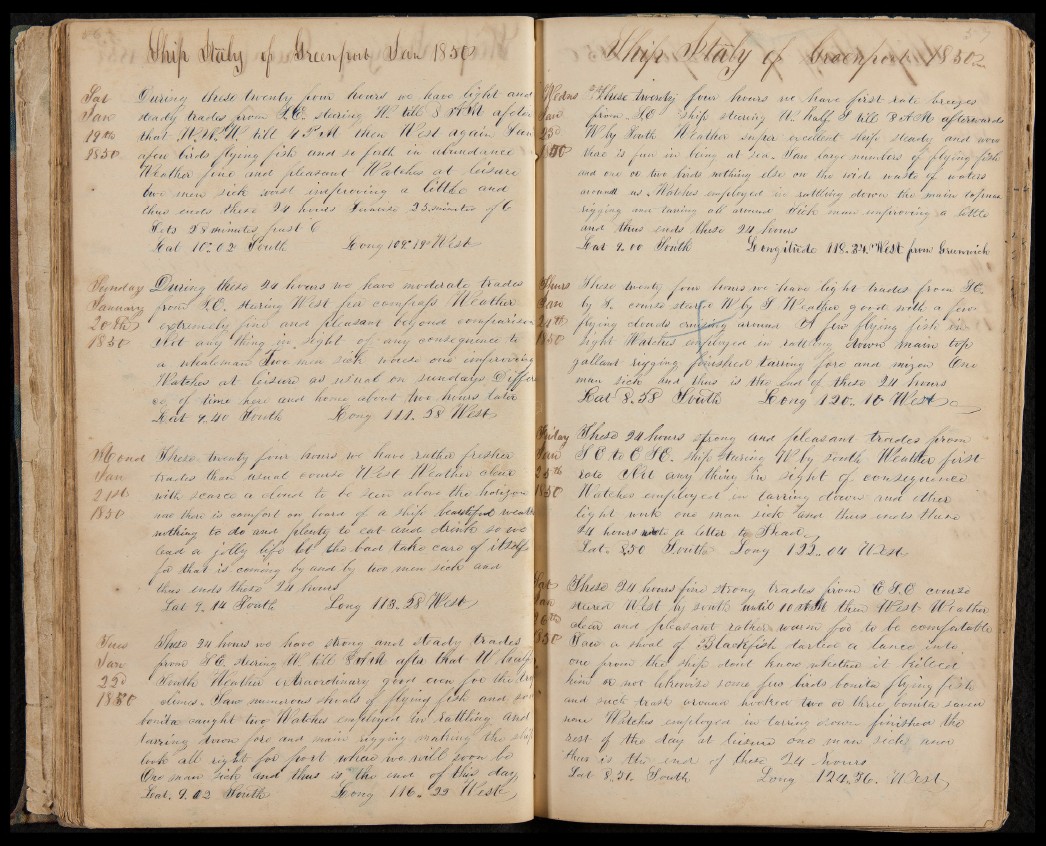 Ship Italy of Greenport Jan 1850
Sat During these twenty four hours we have light and
Jan steady trades from S.E. steering W. till 8 PM after
19th that W.N.W till 4 PM then West again
1850 a few birds flying fish and so forth in abundance
Weather fine and pleasant Watches at leisure
two men sick improving a little and
thus ends these 24 hours 23 minutes of 6
Sets 28 minutes past 6
Lat 10.02 South Long 109.19 West
Sunday During these 24 hours we have moderate trades
January from S.E. steering West per compass Weather
20th extremely fine and pleasant beyond comparison
1850 Not any thing in sight of any consequence to
a whaleman Two men sick one improving
Watches at leisure as usual on sundays
of time here and home about two hours later
Lat 9.40 South Long 111.28 West
Mond These twenty four hours we have rather fresher
Jan trades than usual course West Weather clear
21st with scarce a cloud to be seen above the horizon
1850 now there is comfort on board of a ship beautiful weather
nothing to do and plenty to eat and drink so we
lead a jolly life let the bad take care of itself
for that is coming by and by two men sick and
thus ends these 24 hours
Lat 9.14 South Long 113.28 West
Tues These 24 hours we have strong and steady trades
Jan from S.E. steering W. till 8 PM after that W half
22d South Weather extraordinary good even for the
1850 climes. Saw numerous shoals of flying fish and
bonita caught two Watches employed in rattling and
tarring down fore and main rigging making the ship
look all right for port where we will soon be
One man sick and thus is the end of this day
Lat. 9.02 South Long 116.22 West
57
Ship Italy of Greenport 1850
Wedns These twenty four hours we have first rate breezes
Jan from S.E. ship steering W. half S till 8 AM afterwards
23d W by South Weather super excellent ship steady and now
1850 there is fun in being at sea. Saw large numbers of flying fish
and one or two birds nothing else on the wide waste of waters
around us. Watches employed in rattling down the main topmast
rigging and tarring all around Sick man improving a little
and thus ends these 24 hours
Lat 9.00 South Longitude 118.34 West from Greenwich
Thurs These twenty four hours we have light trades from SE
Jan by S. course steered W by S Weather good with a few
24th flying clouds cruising around A few flying fish in
1850 sight Watches employed in rattling down main top
gallant rigging finished tarring fore and mizen One
man sick and thus is the end of these 24 hours
Lat 8.58 South Long 120.10 West
Friday These 24 hours strong and pleasant trades from
Jan S E to E S E. Ship steering W by south Weather first
25th rate Not any thing in sight of consequence
1850 Watches employed in tarring down and other
light work one man sick and thus ends these
24 hours wrote a letter to
Lat. 8.50 South Long 122.04 West
Sat These 24 hours fine strong trades from E S.E course
Jan steered West by south until 10 AM then West Weather
26th clear and pleasant rather warm for to be comfortable
1850 Saw a shoal of Blackfish darted a lance into
one from the ship dont know whether it killed
him or not likewise some few birds bonita flying fish
and such trash around hooked two or three bonita
Watches employed in tarring down finished the
rest of the day at leisure one man sick and
thus is the end of these 24 hours
Lat 8.51. South Long 124.56. West